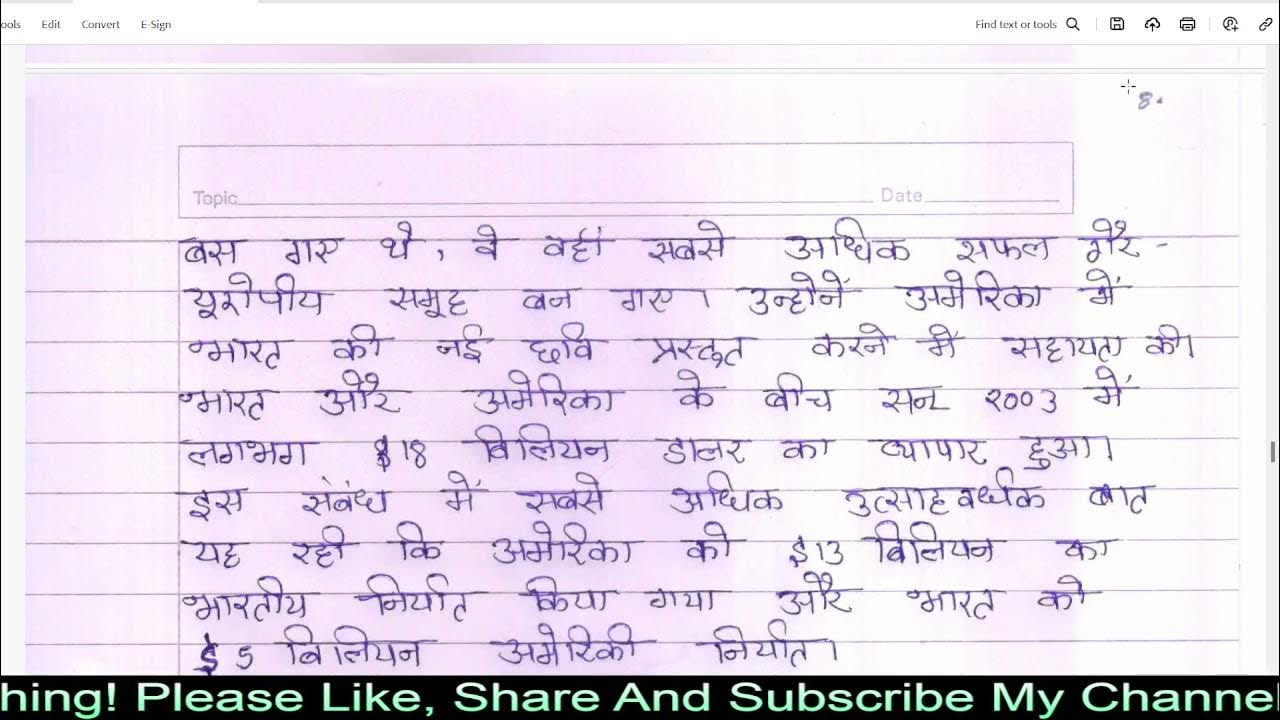 ools Edit Convert E-Sign Find text or tools
8.
Topic Date
बस गए थे, वे वहाँ सबसे अधिक सफल गैर-
यूरोपीय समूह बन गए। उन्होनें अमेरिका में
भारत की नई छवि प्रस्तुत करने में सहायता की।
भारत और अमेरिका के बीच सन् २००३ में
लगभग $18 बिलियन डालर का व्यापार हुआ।
इस संबंध में सबसे अधिक उत्साहवर्धक बात
यह रही कि अमेरिका को $13 बिलियन का
भारतीय निर्यात किया गया और भारत को
$5 बिलियन अमेरिकी निर्यात।
hing! Please Like, Share And Subscribe My Channe